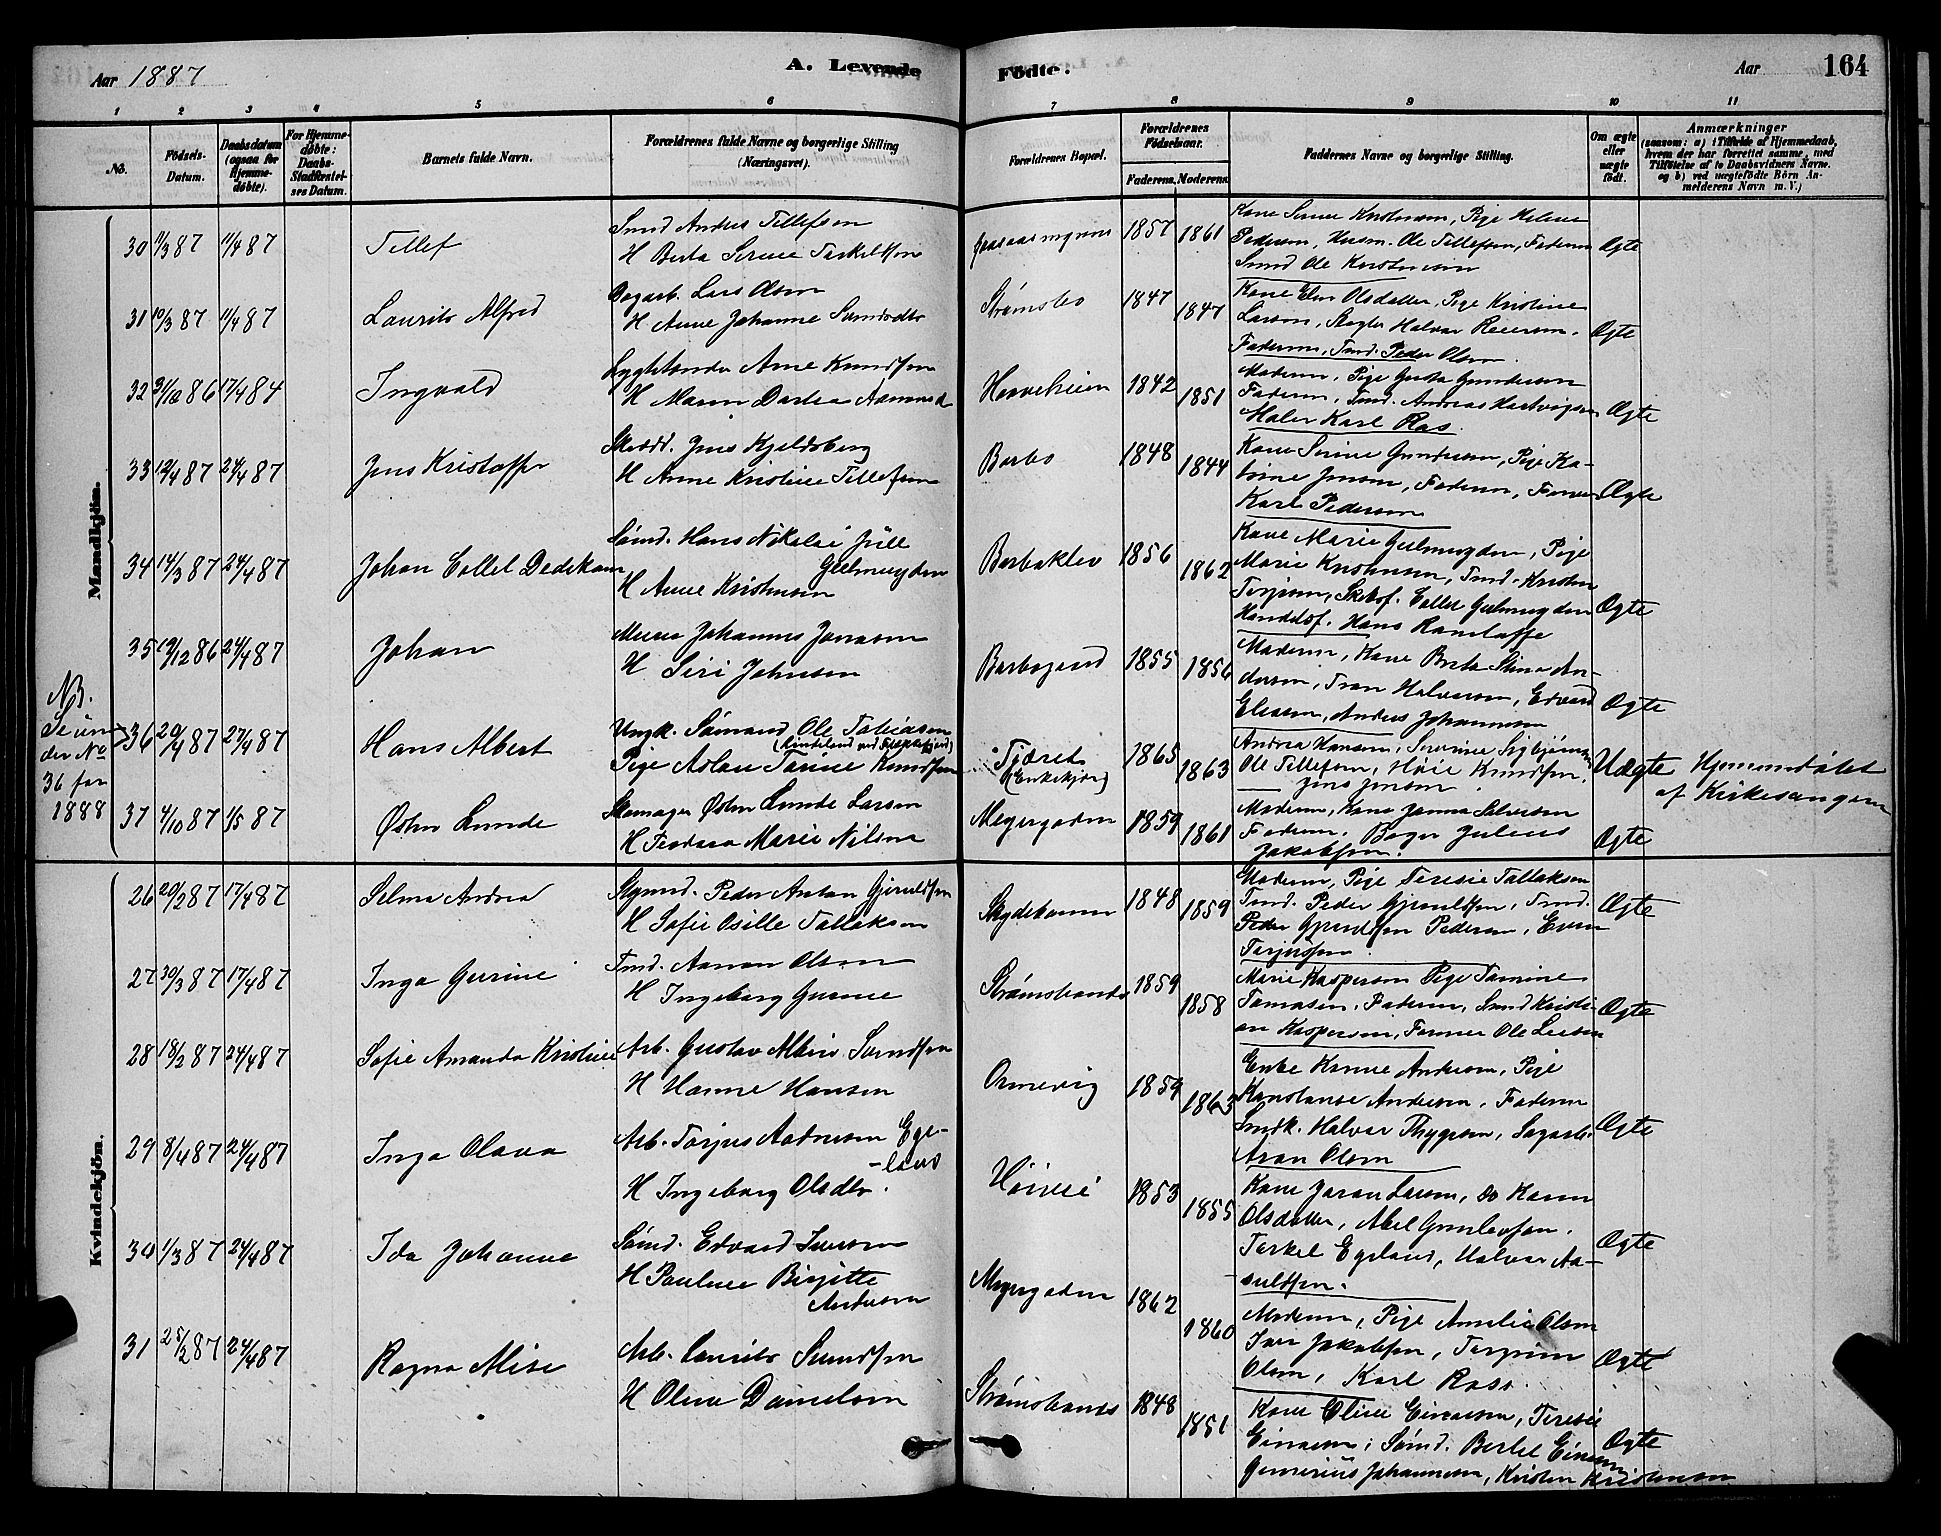 Aar 1887
A. Levende
Fødte.
Aar
164
1 2 3 4 5 6 7 8 9 10 11
No.
Fødsels-Datum.
Daabsdatum (ogsaa for Hjemmedøbte).
For Hjemmedøbte: Daabs-Stadfæstelses Datum.
Barnets fulde Navn.
Forældrenes fulde Navne og borgerlige Stilling (Næringsvei).
Forældrenes Bopæl.
Forældrenes Fødselsaar.
Faderens. Moderens.
Faddernes Navne og borgerlige Stilling.
Om ægte eller uægte født.
Anmærkninger
(saasom: a) i Tilfælde af Hjemmedaab, hvem der har forrettet samme, med Tilføielse af to Daabsvidners Navne, og b) ved uægtefødte Børn Anmelderens Navn m. V.)
Mandkjøn.
30 11/3 87 11/4 87 Tellef
Smed Anders Tellefsen
H Berta Serine Terkelsen
1857 1861
Kone Serine Kristensen, Pige Helene
Pedersen, Husm. Ole Tellefsen, Faderen
Smed Ole Kristensen
Ægte
31 10/3 87 11/4 87 Laurits Alfred
Bogarb. Lars Olsen
H Anne Johanne Samodtr
Strømsbo 1847 1847
Kone Elen Olsdatter, Pige Kristine
Larsen, Slagter Halvor Reiersen,
Faderen, Tmd. Peder Olsen
Ægte
32 31/12 86 17/4 87 Ingvald
Arne Knudsen
H Maren Dortea Aamund
Haveheien 1842 1851
Moderen, Pige Gusta Gundersen
Faderen, Tmd. Andreas Hartvigsen
Maler Karl Ras
Ægte
33 12/4 87 24/4 87 Jens Kristoffer
Skrædd. Jens Kjeldsberg
H Anne Kristine Tellefsen
Barbo 1848 1844
Kone Serine Gundersen, Pige Ka-
trine Jensen, Faderen, Farver
Karl Pedersen
Ægte
34 14/3 87 24/4 87 Johan Collet Dedekam
Sømd. Hans Nikolai Juell
Gulmugden
H Anne Kristensen
Barbuklev 1856 1862
Kone Marie Gulmugden, Pige
Marie Kristensen, Tmd. Kristen
Terjesen, Skibsf. Collet Gulmugden
Handelsf. Hans Ranstoffe
Ægte
35 19/12 86 24/4 87 Johan
Murer Johannes Jonassen
H Siri Johnsen
Barbogaard 1855 1856
Moderen, Kone Berta Stina An-
dersen, Halvorsen, Edvard
Eliasen, Anders Johannesen
Ægte
NB.
Se un-
der No
36 for
1888
36 20/4 87 27/4 87 Hans Albert
Ungk. Sømand Ole Tobiasen
Pige Aslau Tomine Knudsen
Tjæret
(Enkekjær)
1865 1863
Andrea Hansen, Severine Sigbjørnsen
Ole Tellefsen, Høie Knudsen,
Jens Jensen
Uægte
Hjemmedøbt
af Kirkesangeren
37 4/10 87 1/5 87 Østen Lunde
Skomager Østen Lunde Larsen
H Teodora Marie Nilsen
Meyergaden 1859 1861
Moderen, Kone Janna Salvesen
Faderen, Bager Julius
Jakobsen.
Ægte
Kvindekjøn.
26 20/2 87 17/4 87 Selma Andrea
Styrmd. Peder Anton Gjeruldsen
H Sofie Osille Tallaksen
Skydebanen 1848 1859
Moderen, Pige Teresie Tallaksen
Tmd. Peder Gjeruldsen, Tmd.
Peder Gjeruldsen Pedersen, Even
Terjesen.
Ægte
27 30/3 87 17/4 87 Inga Gurine
Tmd. Aanon Olsen
H Ingeborg Gurine
Strømsbunds 1859 1858
Marie Kaspersen Pige Tomine
Tomasen, Faderen, Smed Kristi-
an Kaspersen, Tømmer Ole Larsen
Ægte
28 18/2 87 24/4 87 Sofie Amanda Kristine
Arb. Gustav Albin Svendsen
H Hanne Hansen
Ormevig 1859 1863
Enke Karine Andersen, Pige
Konstanse Andersen, Faderen
Smdk. Halvor Thygesen, Sagarb.
Aron Olsen
Ægte
29 8/4 87 24/4 87 Inga Olava
Arb. Torjus Aadnesen Ege-
-land
H Ingeborg Olsdtr.
Høivei 1853 1855
Kone Joran Larsen, do Karen
Olsdatter, Abel Gunlevsen,
Terkel Egeland, Halvor Aa-
-suldsen.
Ægte
30 1/3 87 24/4 87 Ida Johanne
Sømd. Edvard Iversen
H Pauline Birgitte
Andersen
Meyergaden 1862 1860
Moderen, Pige Amalie Olsen
Iver Jakobsen, Terjesen
Olsen, Karl Rass.
Ægte
31 25/2 87 24/4 87 Ragna Alise
Arb. Laurits Svendsen
H Olene Danielsen
Strømsbunds 1848 1851
Kone Oline Einarsen, Teresie
Einarsen, Sømd. Bertel Einarsen
Gunerius Johannesen, Kristen Kristensen
Ægte